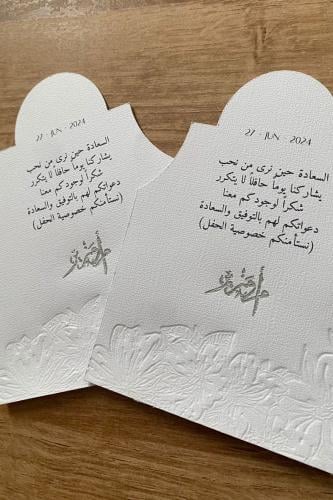 27 - JUN - 2024
السعادة حين نرى من نحب
يشاركنا يوماً حافلاً لا يتكرر
شكراً لوجودكم معنا
دعواتكم لهم بالتوفيق والسعادة
(نستأمنكم خصوصية الحفل)
27 - JUN - 2024
السعادة حين نرى من نحب
يشاركنا يوماً حافلاً لا يتكرر
شكراً لوجودكم معنا
دعواتكم لهم بالتوفيق والسعادة
(نستأمنكم خصوصية الحفل)